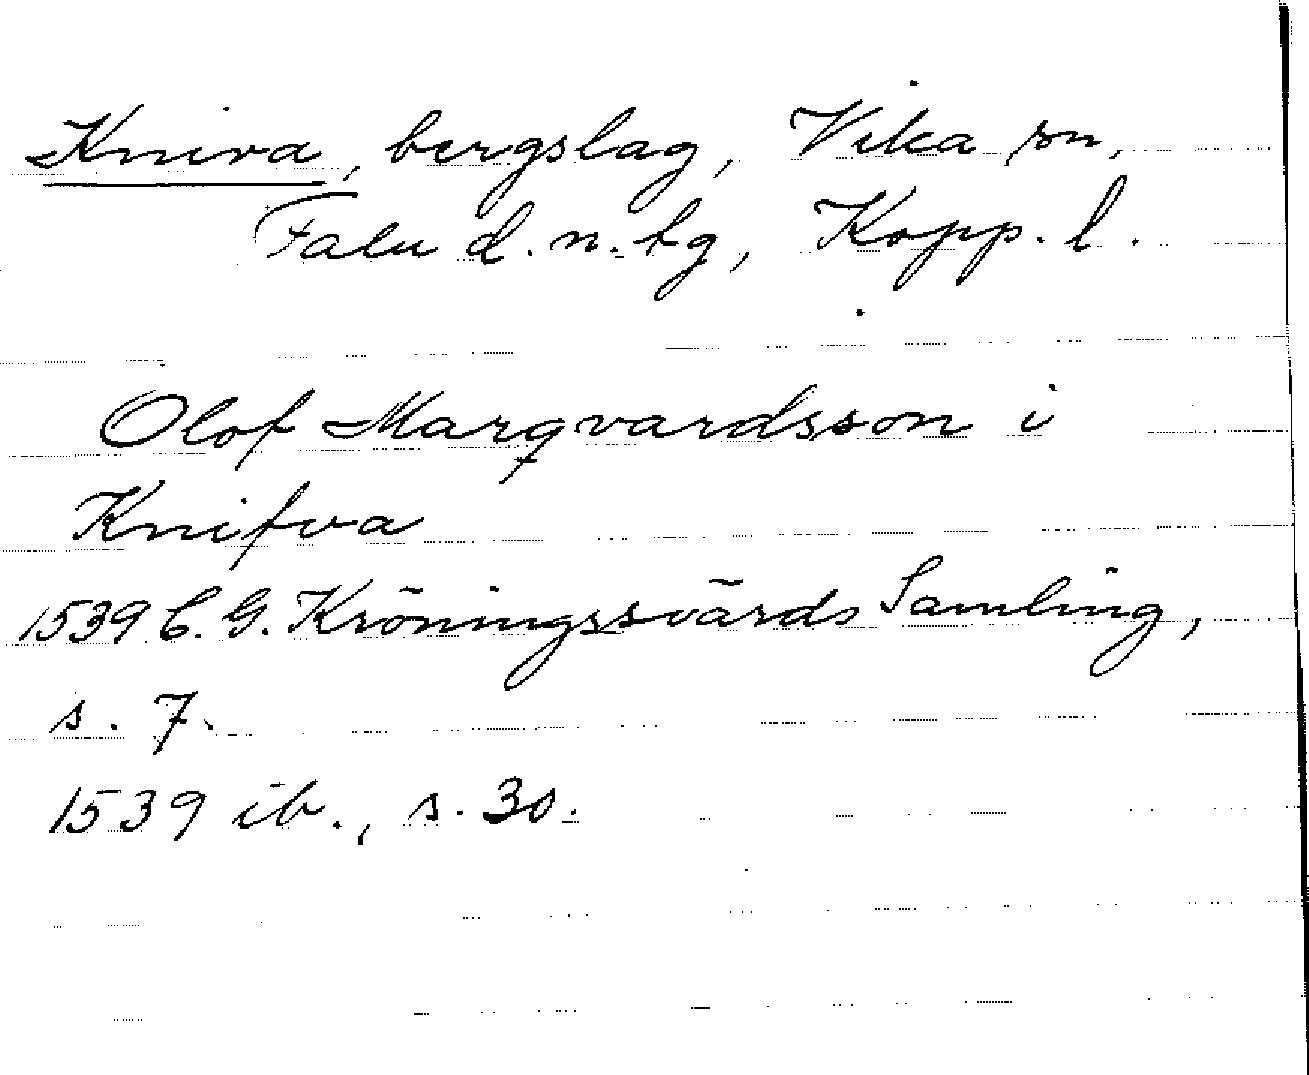 Kniva, bergslag, Vika sn,
Falu d. n. tg, Kopp. l.
Olof Marqvardsson i
Knifva
1539 C. G. Kröningssvärds Samling,
s. 7.
1539 ib., s. 30.